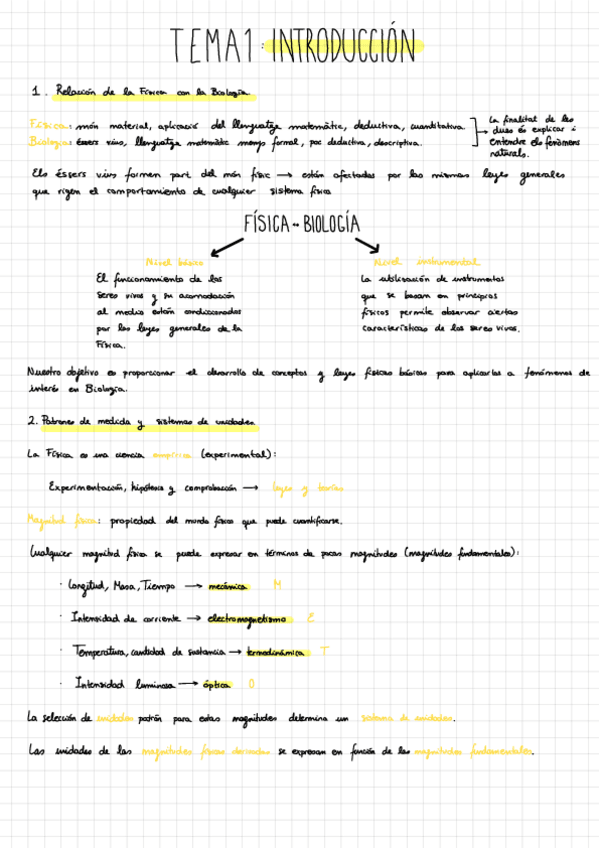 TEMA 1: INTRODUCCIÓN
1. Relación de la Física con la Biología
Física: món material, aplicació del llenguatge matemàtic, deductiva, cuantitativa.
Biologia: éssers vius, llenguatge matemàtic menys formal, poc deductiva, descriptiva.
La finalitat de les
dues és explicar i
entendre els fenòmens
naturals.
Els éssers vius formen part del món físic → están afectadas por las mismas leyes generales
que rigen el comportamiento de cualquier sistema físico
FÍSICA ↔ BIOLOGÍA
Nivel básico
El funcionamiento de los
seres vivos y su acomodación
al medio están condicionados
por las leyes generales de la
Física.
Nivel instrumental
La utilización de instrumentos
que se basan en principios
físicos permite observar ciertas
características de los seres vivos.
Nuestro objetivo es proporcionar el desarrollo de conceptos y leyes físicas básicas para aplicarlas a fenómenos de
interés en Biología.
2. Patrones de medida y sistemas de unidades
La Física es una ciencia empírica (experimental):
Experimentación, hipótesis y comprobación → leyes y teorías
Magnitud física: propiedad del mundo físico que puede cuantificarse.
Cualquier magnitud física se puede expresar en términos de pocas magnitudes (magnitudes fundamentales):
· Longitud, Masa, Tiempo → mecánica M
· Intensidad de corriente → electromagnetismo E
· Temperatura, cantidad de sustancia → termodinámica T
· Intensidad luminosa → óptica O
La selección de unidades patrón para estas magnitudes determina un sistema de unidades.
Las unidades de las magnitudes físicas derivadas se expresan en función de las magnitudes fundamentales.